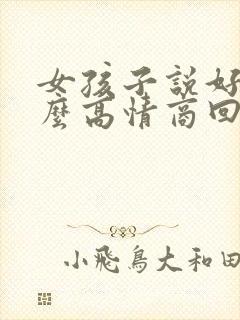 女孩子説好
麼高情商回
小飛鳥大和田